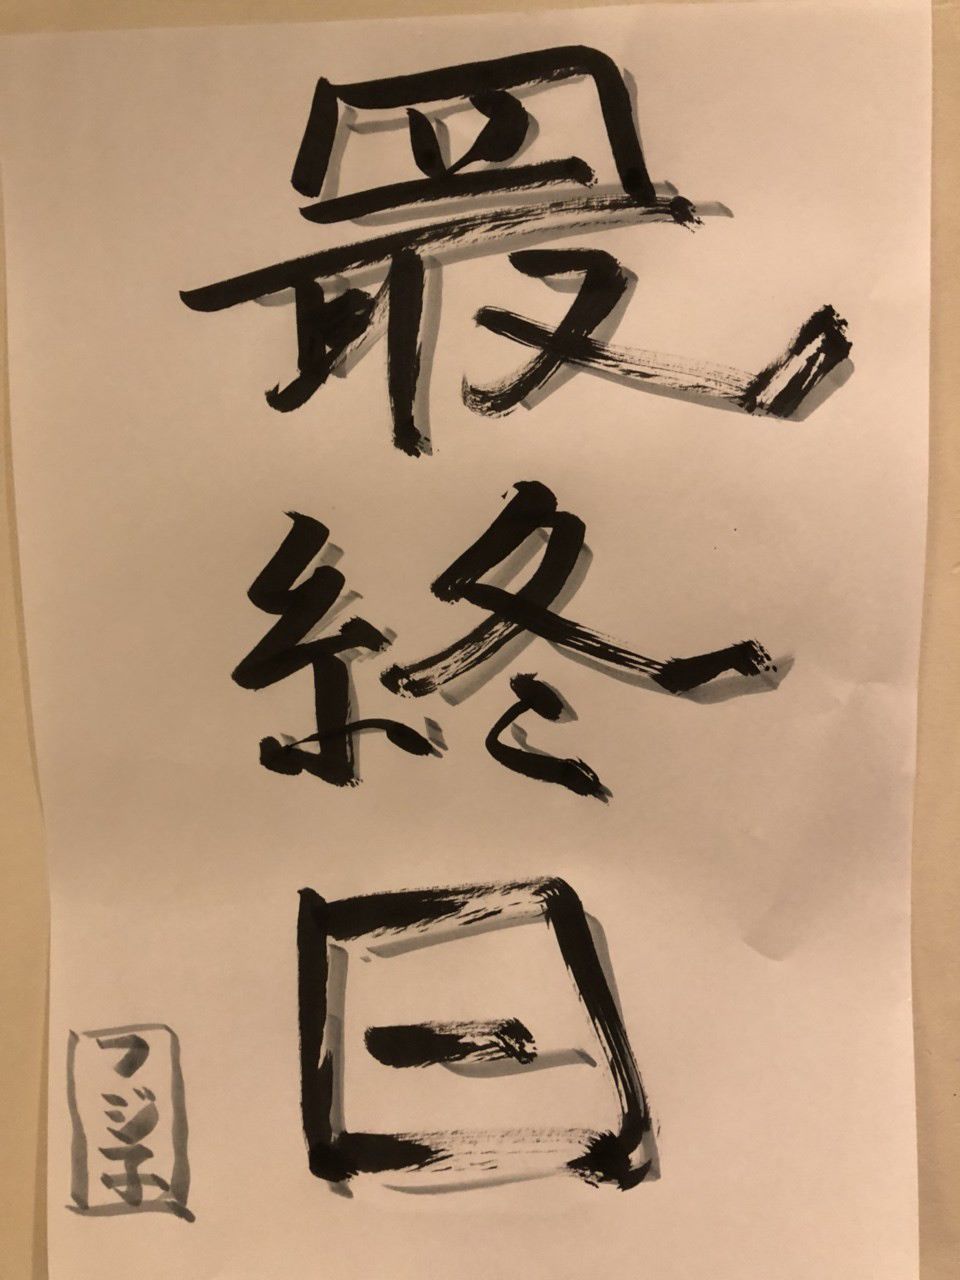 最終日
フジ子